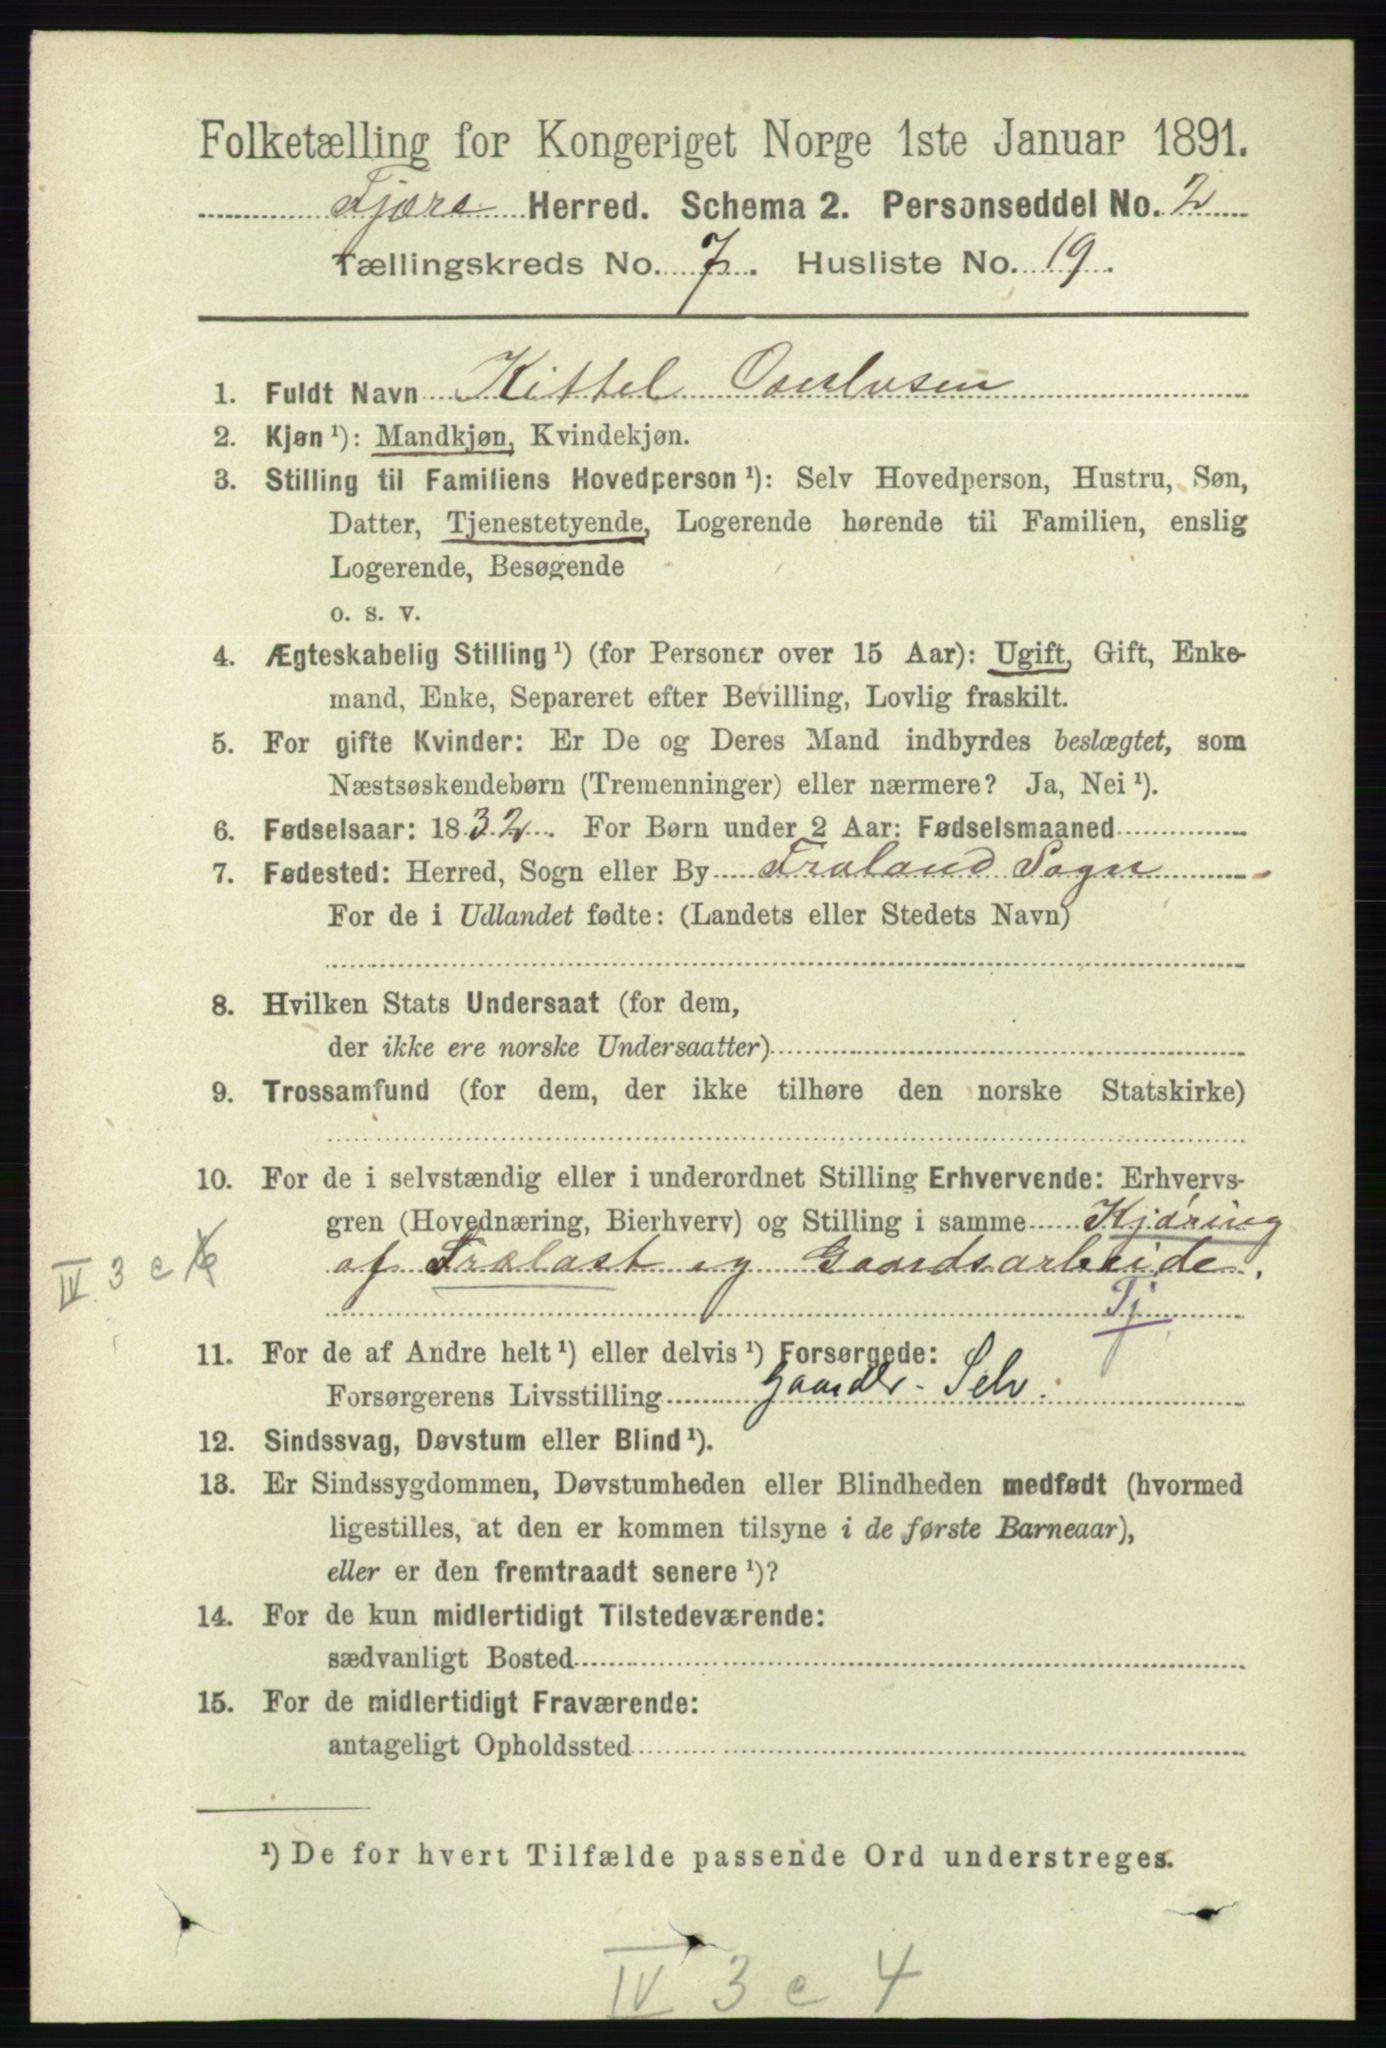 Folketælling for Kongeriget Norge 1ste Januar 1891.
Fjære Herred. Schema 2. Personseddel No. 2
Tællingskreds No. 7. Husliste No. 19.
1. Fuldt Navn Kittel
2. Kjøn ¹): Mandkjøn, Kvindekjøn.
3. Stilling til Familiens Hovedperson ¹): Selv Hovedperson, Hustru, Søn,
Datter, Tjenestetyende, Logerende hørende til Familien, enslig
Logerende, Besøgende
o. s. v.
4. Ægteskabelig Stilling ¹) (for Personer over 15 Aar): Ugift, Gift, Enke-
mand, Enke, Separeret efter Bevilling, Lovlig fraskilt.
5. For gifte Kvinder: Er De og Deres Mand indbyrdes beslægtet, som
Næstsøskendebørn (Tremenninger) eller nærmere? Ja, Nei ¹).
6. Fødselsaar: 1832. For Børn under 2 Aar: Fødselsmaaned
7. Fødested: Herred, Sogn eller By Froland Sogn
For de i Udlandet fødte: (Landets eller Stedets Navn)
8. Hvilken Stats Undersaat (for dem,
der ikke ere norske Undersaatter)
9. Trossamfund (for dem, der ikke tilhøre den norske Statskirke)
10. For de i selvstændig eller i underordnet Stilling Erhvervende: Erhvervs-
gren (Hovednæring, Bierhverv) og Stilling i samme Kjøring
IV 3 c 6
af Trælast og Gaardsarbeide.
Tj
11. For de af Andre helt ¹) eller delvis ¹) Forsørgede:
Forsørgerens Livsstilling Gaardbr. Selv.
12. Sindssvag, Døvstum eller Blind ¹).
13. Er Sindssygdommen, Døvstumheden eller Blindheden medfødt (hvormed
ligestilles, at den er kommen tilsyne i de første Barneaar),
eller er den fremtraadt senere ¹)?
14. For de kun midlertidigt Tilstedeværende:
sædvanligt Bosted
15. For de midlertidigt Fraværende:
antageligt Opholdssted
¹) De for hvert Tilfælde passende Ord understreges.
IV 3 c 4